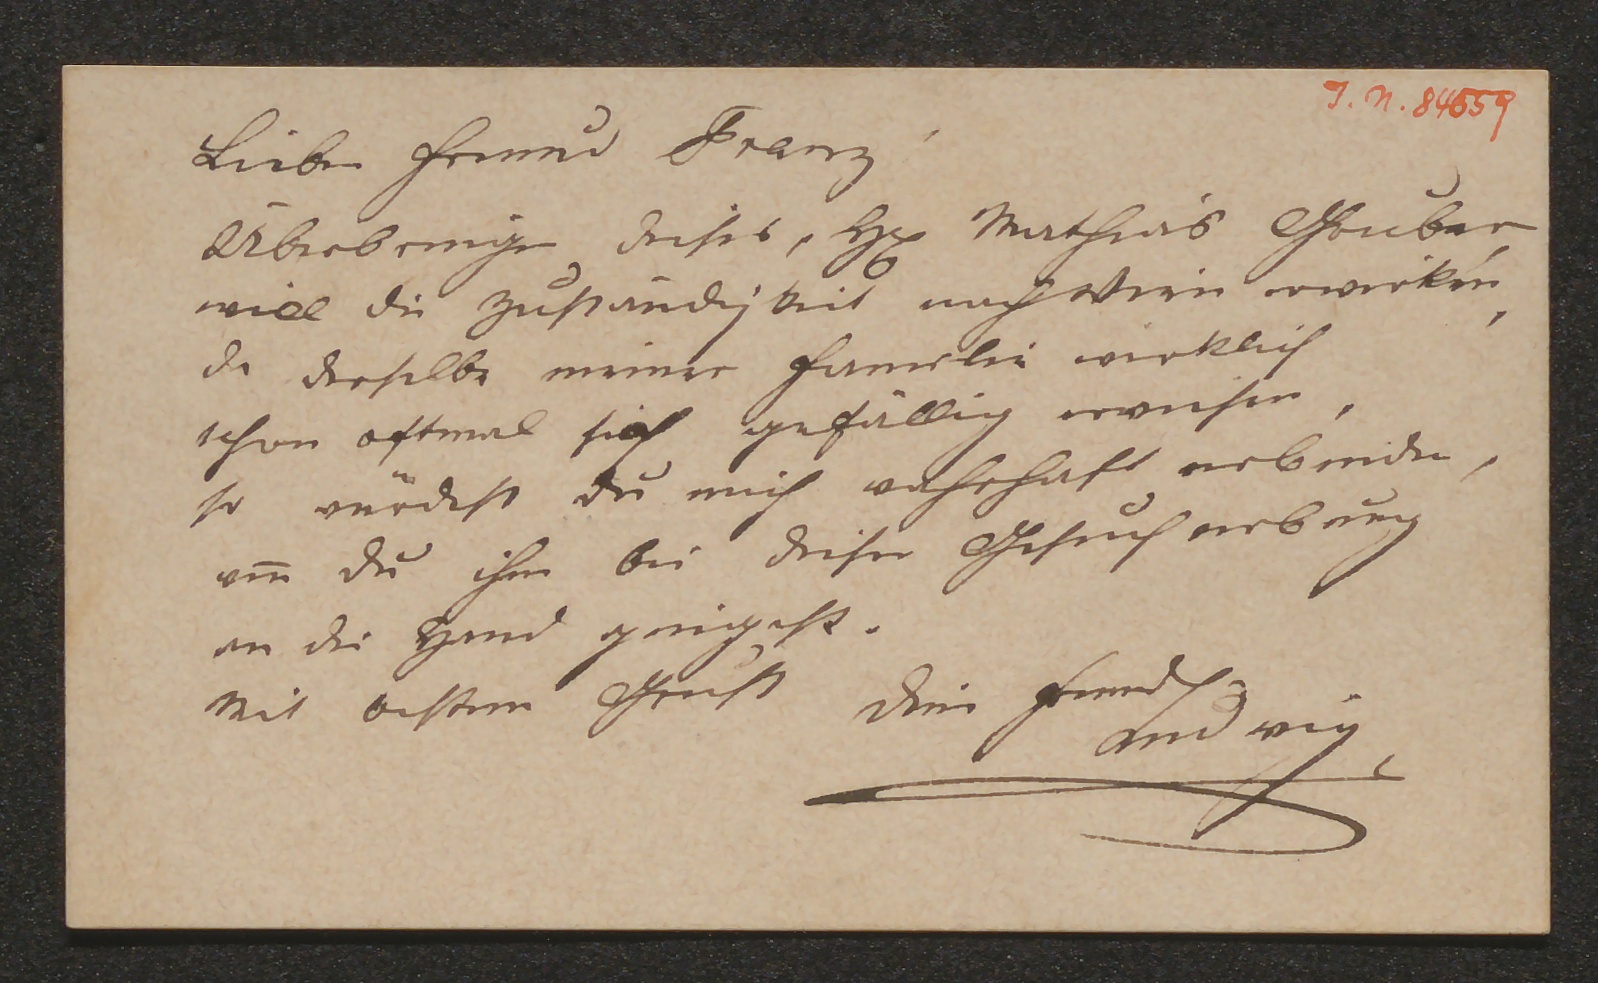 J. N. 84659
Lieber Freund Franz!
Überbringer dieses, H. Mathias Gruber
will die Zuständigkeit nach Wien erwirken,
da derselbe meiner Familie wirklich
schon oftmal sich gefällig erwiesen,
so würdest Du mich wahrhaft verbinden,
wen̄ Du ihm bei dieser Gesuchgebung
an die Hand gingest.
Mit bestem Gruß Dein Freund
Ludwig